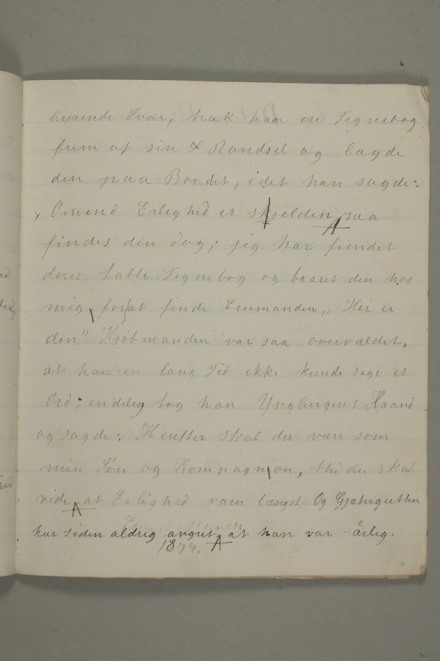 bejaende Svar, trak han en Tegnebog
frem af sin Randsel og lagde
den paa Bordet, idet han sagde:
„Omend Erlighed er skjelden, saa
findes din dog; jeg har fundet
deres tabte Tegnebog og baaret den hos
mig, for at finde Eiermanden, Her er
den." Kjøbmanden var saa overvældet,
at han en lang Tid ikke kunde sige et
Ord; endelig tog han Ynglingens Haand
og sagde: Herefter skal du være som
min Søn og Kompagnion, thi du skal
vide, at Erlighed varer længst. Og Gjætergutten
har siden aldrig angret, at han var ærlig.
1877.